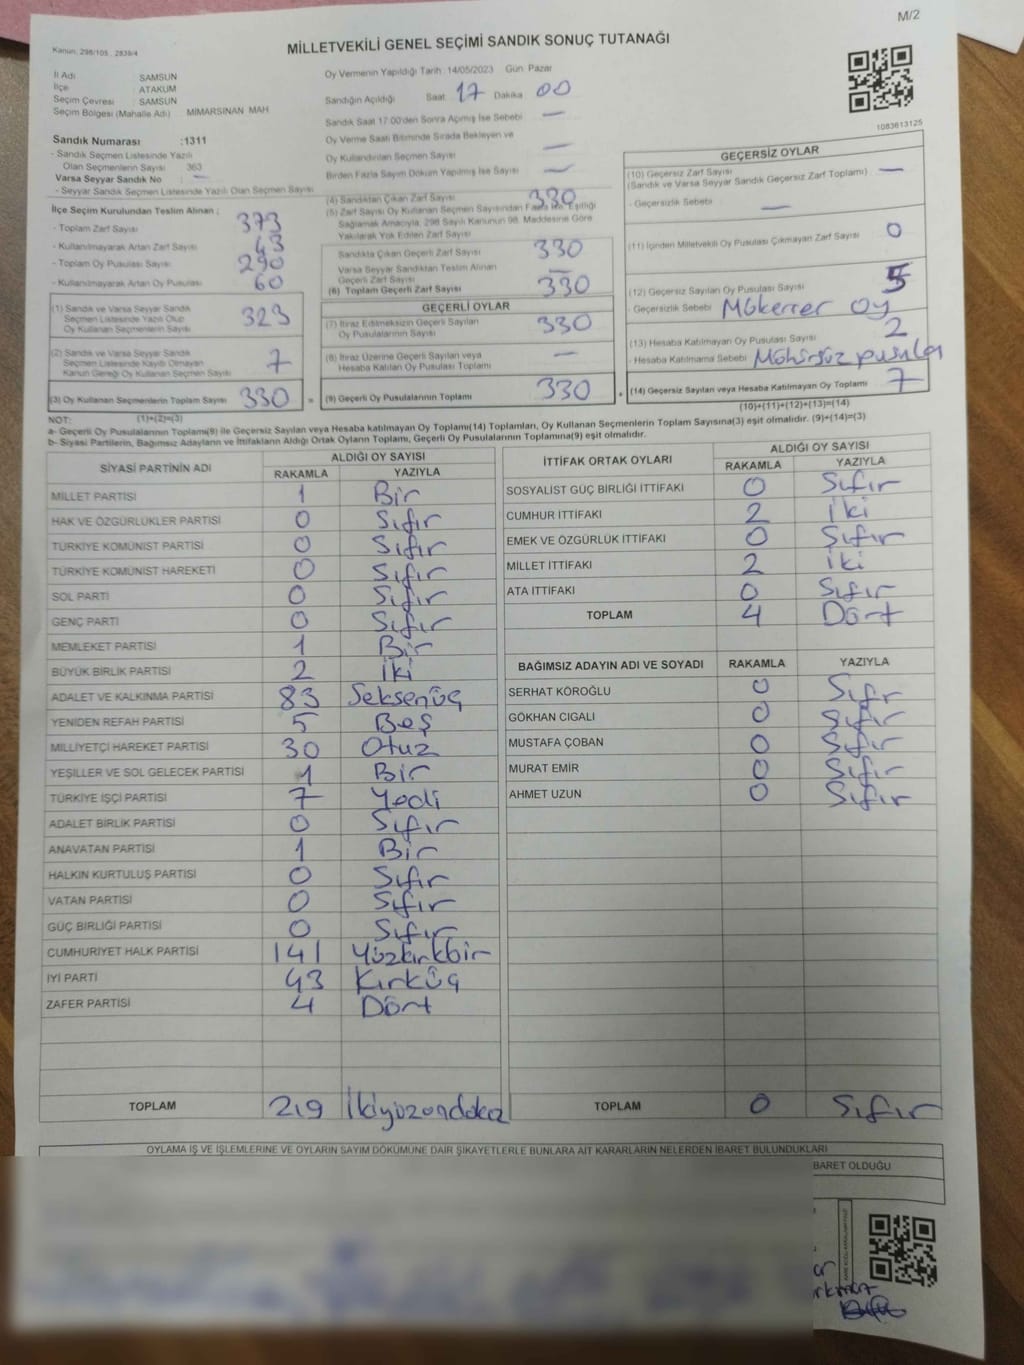 M/2
Kanun: 298/105 , 2839/4
MİLLETVEKİLİ GENEL SEÇİMİ SANDIK SONUÇ TUTANAĞI
İl Adı SAMSUN
İlçe : ATAKUM
Seçim Çevresi : SAMSUN
Seçim Bölgesi (Mahalle Adı) MİMARSİNAN MAH
Sandık Numarası :1311
- Sandık Seçmen Listesinde Yazılı
Olan Seçmenlerin Sayısı 363
Varsa Seyyar Sandık No : —
- Seyyar Sandık Seçmen Listesinde Yazılı Olan Seçmen Sayısı
Oy Vermenin Yapıldığı Tarih : 14/05/2023 Gün: Pazar
Sandığın Açıldığı Saat 17 Dakika 00
Sandık Saat 17:00'den Sonra Açmış İse Sebebi —
Oy Verme Saati Bitiminde Sırada Bekleyen ve
Oy Kullandırılan Seçmen Sayısı —
Birden Fazla Sayım Döküm Yapılmış İse Sayısı —
1083613125
İlçe Seçim Kurulundan Teslim Alınan ;
- Toplam Zarf Sayısı 373
- Kullanılmayarak Artan Zarf Sayısı 43
- Toplam Oy Pusulası Sayısı 290
- Kullanılmayarak Artan Oy Pusulası 60
(1) Sandık ve Varsa Seyyar Sandık
Seçmen Listesinde Yazılı Olup
Oy Kullanan Seçmenlerin Sayısı 323
(2) Sandık ve Varsa Seyyar Sandık
Seçmen Listesinde Kayıtlı Olmayan
Kanun Gereği Oy Kullanan Seçmen Sayısı 7
(3) Oy Kullanan Seçmenlerin Toplam Sayısı 330
(4) Sandıktan Çıkan Zarf Sayısı 330
(5) Zarf Sayısı Oy Kullanan Seçmen Sayısından Fazla İse, Eşitliği
Sağlamak Amacıyla, 298 Sayılı Kanunun 98. Maddesine Göre
Yakılarak Yok Edilen Zarf Sayısı
Sandıkta Çıkan Geçerli Zarf Sayısı 330
Varsa Seyyar Sandıktan Teslim Alınan
Geçerli Zarf Sayısı —
(6) Toplam Geçerli Zarf Sayısı 330
GEÇERLİ OYLAR
(7) İtiraz Edilmeksizin Geçerli Sayılan
Oy Pusulalarının Sayısı 330
(8) İtiraz Üzerine Geçerli Sayılan veya
Hesaba Katılan Oy Pusulası Toplamı —
(9) Geçerli Oy Pusulalarının Toplamı 330
GEÇERSİZ OYLAR
(10) Geçersiz Zarf Sayısı —
(Sandık ve Varsa Seyyar Sandık Geçersiz Zarf Toplamı)
- Geçersizlik Sebebi —
(11) İçinden Milletvekili Oy Pusulası Çıkmayan Zarf Sayısı 0
(12) Geçersiz Sayılan Oy Pusulası Sayısı 5
- Geçersizlik Sebebi Mükerrer oy
(13) Hesaba Katılmayan Oy Pusulası Sayısı 2
- Hesaba Katılmama Sebebi Mühürsüz pusula
(14) Geçersiz Sayılan veya Hesaba Katılmayan Oy Toplamı 7
NOT: (1)+(2)=(3) (10)+(11)+(12)+(13)=(14)
a- Geçerli Oy Pusulalarının Toplamı(9) ile Geçersiz Sayılan veya Hesaba katılmayan Oy Toplamı(14) Toplamları, Oy Kullanan Seçmenlerin Toplam Sayısına(3) eşit olmalıdır. (9)+(14)=(3)
b- Siyasi Partilerin, Bağımsız Adayların ve İttifakların Aldığı Ortak Oyların Toplamı, Geçerli Oy Pusulalarının Toplamına(9) eşit olmalıdır.
SİYASİ PARTİNİN ADI ALDIĞI OY SAYISI
RAKAMLA YAZIYLA
MİLLET PARTİSİ 1 Bir
HAK VE ÖZGÜRLÜKLER PARTİSİ 0 Sıfır
TÜRKİYE KOMÜNİST PARTİSİ 0 Sıfır
TÜRKİYE KOMÜNİST HAREKETİ 0 Sıfır
SOL PARTİ 0 Sıfır
GENÇ PARTİ 0 Sıfır
MEMLEKET PARTİSİ 1 Bir
BÜYÜK BİRLİK PARTİSİ 2 İki
ADALET VE KALKINMA PARTİSİ 83 Seksenüç
YENİDEN REFAH PARTİSİ 5 Beş
MİLLİYETÇİ HAREKET PARTİSİ 30 Otuz
YEŞİLLER VE SOL GELECEK PARTİSİ 1 Bir
TÜRKİYE İŞÇİ PARTİSİ 7 Yedi
ADALET BİRLİK PARTİSİ 0 Sıfır
ANAVATAN PARTİSİ 1 Bir
HALKIN KURTULUŞ PARTİSİ 0 Sıfır
VATAN PARTİSİ 0 Sıfır
GÜÇ BİRLİĞİ PARTİSİ 0 Sıfır
CUMHURİYET HALK PARTİSİ 141 Yüzkırkbir
İYİ PARTİ 43 Kırküç
ZAFER PARTİSİ 4 Dört
TOPLAM 219
İTTİFAK ORTAK OYLARI ALDIĞI OY SAYISI
RAKAMLA YAZIYLA
SOSYALİST GÜÇ BİRLİĞİ İTTİFAKI 0 Sıfır
CUMHUR İTTİFAKI 2 İki
EMEK VE ÖZGÜRLÜK İTTİFAKI 0 Sıfır
MİLLET İTTİFAKI 2 iki
ATA İTTİFAKI 0 Sıfır
TOPLAM 4 Dört
BAĞIMSIZ ADAYIN ADI VE SOYADI RAKAMLA YAZIYLA
SERHAT KÖROĞLU 0 Sıfır
GÖKHAN CIGALI 0 Sıfır
MUSTAFA ÇOBAN 0 Sıfır
MURAT EMİR 0 Sıfır
AHMET UZUN 0 Sıfır
TOPLAM 0 Sıfır
OYLAMA İŞ VE İŞLEMLERİNE VE OYLARIN SAYIM DÖKÜMÜNE DAİR ŞİKAYETLERLE BUNLARA AİT KARARLARIN NELERDEN İBARET BULUNDUKLARI
BARET OLDUĞU